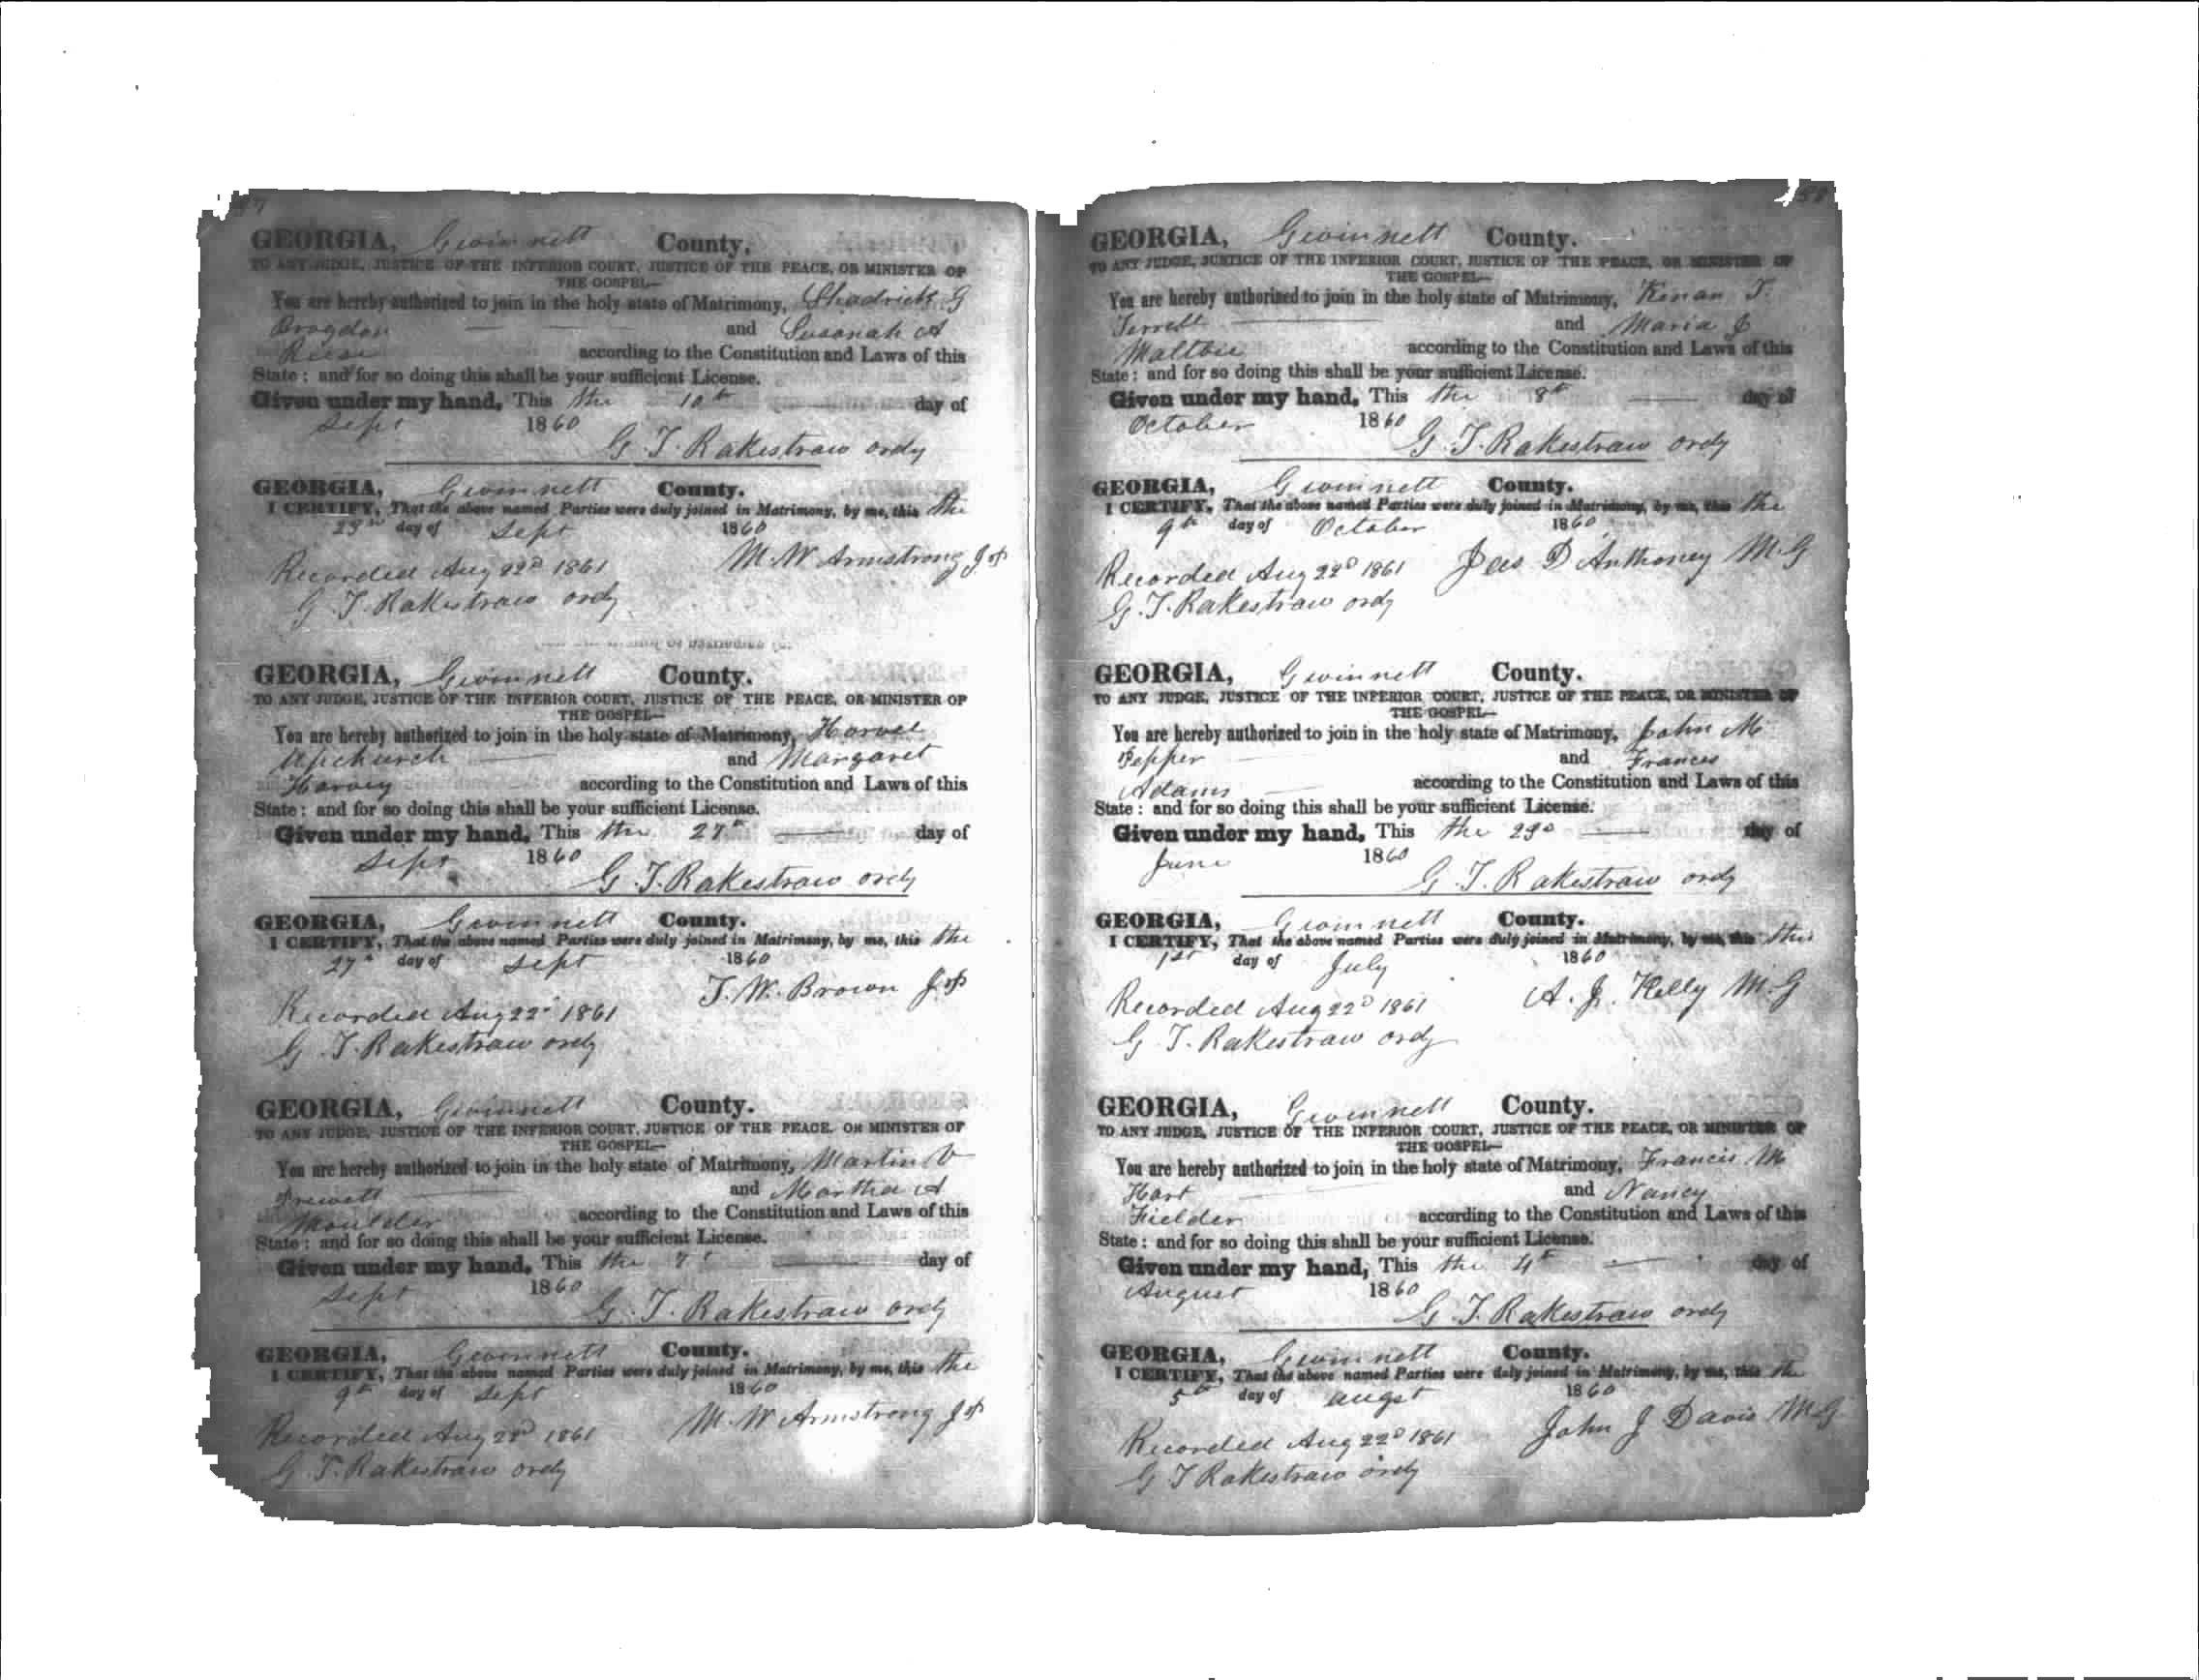 GEORGIA, Gwinnett County.
TO ANY JUDGE, JUSTICE OF THE INFERIOR COURT, JUSTICE OF THE PEACE, OR MINISTER OF
THE GOSPEL—
You are hereby authorized to join in the holy state of Matrimony, Shadrick G
Brogdon and Susanah A
Reese according to the Constitution and Laws of this
State : and for so doing this shall be your sufficient License.
Given under my hand, This the 10th day of
Sept 1860
G. T. Rakestraw ordy
GEORGIA, Gwinnett County.
I CERTIFY, That the above named Parties were duly joined in Matrimony, by me, this the
23rd day of Sept 1860
M. W Armstrong J P
Recorded Aug 22d 1861
G. T. Rakestraw ordy
GEORGIA, Gwinnett County.
TO ANY JUDGE, JUSTICE OF THE INFERIOR COURT, JUSTICE OF THE PEACE, OR MINISTER OF
THE GOSPEL—
You are hereby authorized to join in the holy state of Matrimony, Harvel
Upchurch and Margaret
Harvey according to the Constitution and Laws of this
State : and for so doing this shall be your sufficient License.
Given under my hand, This the 27th day of
Sept 1860
G. T. Rakestraw ordy
GEORGIA, Gwinnett County.
I CERTIFY, That the above named Parties were duly joined in Matrimony, by me, this the
27th day of Sept 1860
T. W. Brown J P
Recorded Aug 22d 1861
G. T. Rakestraw ordy
GEORGIA, Gwinnett County.
TO ANY JUDGE, JUSTICE OF THE INFERIOR COURT, JUSTICE OF THE PEACE, OR MINISTER OF
THE GOSPEL—
You are hereby authorized to join in the holy state of Matrimony, Martin V
Prewett and Martha A
Moulder according to the Constitution and Laws of this
State : and for so doing this shall be your sufficient License.
Given under my hand, This the 7th day of
Sept 1860
G. T. Rakestraw ordy
GEORGIA, Gwinnett County.
I CERTIFY, That the above named Parties were duly joined in Matrimony, by me, this the
9th day of Sept 1860
M. W Armstrong J P
Recorded Aug 22d 1861
G. T. Rakestraw ordy
88
GEORGIA, Gwinnett County.
TO ANY JUDGE, JUSTICE OF THE INFERIOR COURT, JUSTICE OF THE PEACE, OR MINISTER OF
THE GOSPEL—
You are hereby authorized to join in the holy state of Matrimony, Kenan T.
Terrell and Maria J
Maltbie according to the Constitution and Laws of this
State : and for so doing this shall be your sufficient License.
Given under my hand, This the 8th day of
October 1860
G. T. Rakestraw ordy
GEORGIA, Gwinnett County.
I CERTIFY, That the above named Parties were duly joined in Matrimony, by me, this the
9th day of October 1860
Jas D Anthoney M. G
Recorded Aug 22d 1861
G. T. Rakestraw ordy
GEORGIA, Gwinnett County.
TO ANY JUDGE, JUSTICE OF THE INFERIOR COURT, JUSTICE OF THE PEACE, OR MINISTER OF
THE GOSPEL—
You are hereby authorized to join in the holy state of Matrimony, John M
Pepper and Frances
Adams according to the Constitution and Laws of this
State : and for so doing this shall be your sufficient License.
Given under my hand, This the 29d day of
June 1860
G. T. Rakestraw ordy
GEORGIA, Gwinnett County.
I CERTIFY, That the above named Parties were duly joined in Matrimony, by me, this this
1st day of July 1860
A. J. Kelly M. G
Recorded Aug 22d 1861
G T. Rakestraw ordy
GEORGIA, Gwinnett County.
TO ANY JUDGE, JUSTICE OF THE INFERIOR COURT, JUSTICE OF THE PEACE, OR MINISTER OF
THE GOSPEL—
You are hereby authorized to join in the holy state of Matrimony, Francis M
Hart and Nancy
Fielder according to the Constitution and Laws of this
State : and for so doing this shall be your sufficient License.
Given under my hand, This the 4th day of
August 1860
G. T. Rakestraw ordy
GEORGIA, Gwinnett County.
I CERTIFY, That the above named Parties were duly joined in Matrimony, by me, this the
5th day of augst 1860
John J Davis M. G.
Recorded Aug 22d 1861
G T Rakestraw ordy